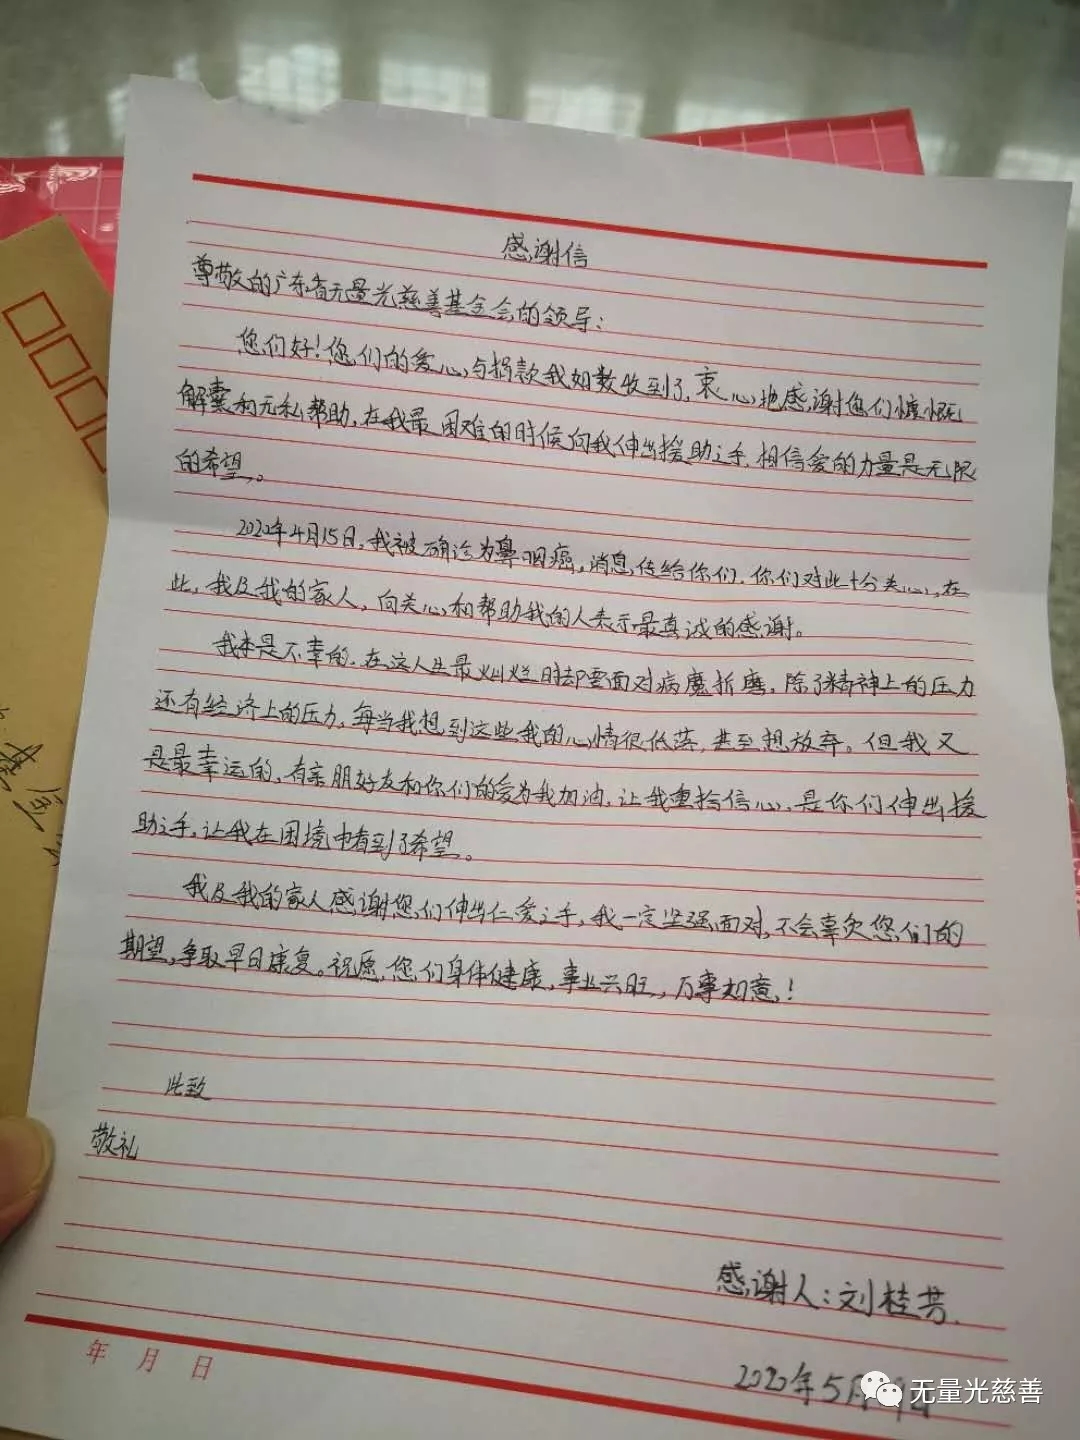 感谢信
尊敬的广东省无量光慈善基金会的领导：
您们好！您们的爱心与捐款我如数收到了，衷心地感谢您们慷慨
解囊和无私帮助，在我最困难的时候向我伸出援助之手，相信爱的力量是无限
的希望。
2020年4月15日，我被确诊为鼻咽癌，消息传给你们，你们对此十分关心，在
此，我及我的家人，向关心和帮助我的人表示最真诚的感谢。
我本是不幸的，在这人生最灿烂时却要面对病魔折磨，除了精神上的压力
还有经济上的压力，每当我想到这些我的心情很低落，甚至想放弃。但我又
是最幸运的，有亲朋好友和你们的爱为我加油，让我重拾信心，是你们伸出援
助之手，让我在困境中看到了希望。
我及我的家人感谢您们伸出仁爱之手，我一定坚强面对，不会辜负您们的
期望，争取早日康复。祝愿您们身体健康，事业兴旺，万事如意！
此致
敬礼
感谢人：刘桂芳
2020年5月 日
年 月 日
无量光慈善